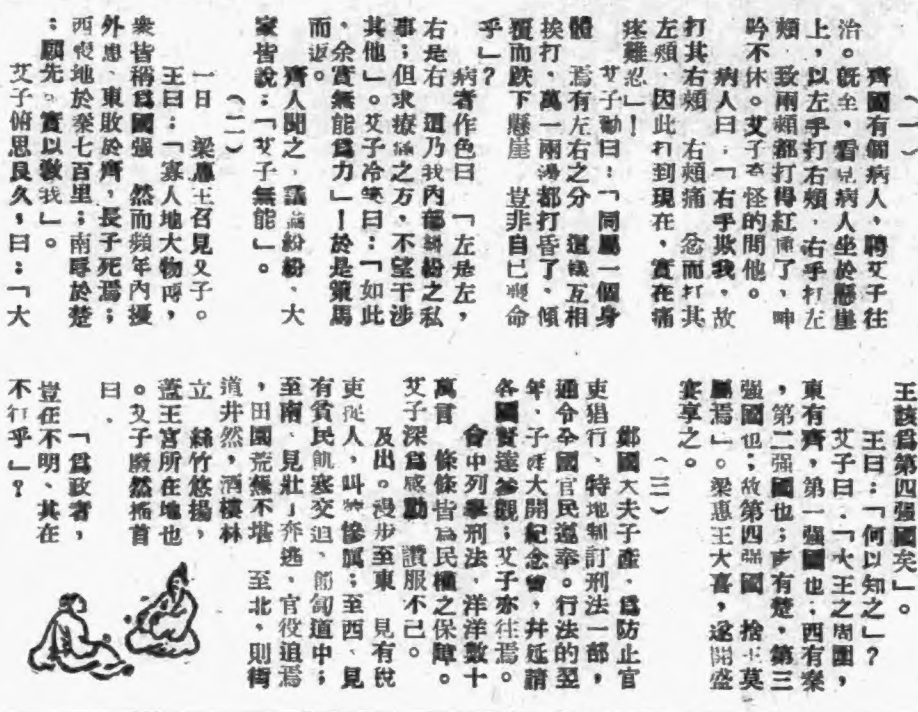 (一)
齊國有個病人，聘艾子往
治。旣至，看見病人坐於懸崖
上，以左手打右頰，右手打左
頰，致兩頰都打得紅腫了，呻
吟不休。艾子奇怪的問他。
病人曰：「右手欺我，故
打其右頰，右頰痛，忿而打其
左頰，因此打到現在，實在痛
疼難忍」！
艾子勸曰：「同屬一個身
體，焉有左右之分，這樣互相
挨打，萬一兩邊都打昏了，傾
覆而跌下懸崖，豈非自己喪命
乎」？
病者作色曰：「左是左，
右是右，這乃我內部糾紛之私
事；但求療傷之方，不望干涉
其他」。艾子冷笑曰：「如此
，余實無能爲力」！於是策馬
而返。
齊人聞之，議論紛紛，大
家皆說：「艾子無能」。
(二)
一日，梁惠王召見艾子。
王曰：「寡人地大物博，
衆皆稱爲國强，然而頻年內擾
外患、東敗於齊，長子死焉；
西喪地於秦七百里；南辱於楚
：願先。實以敎我」。
艾子俯思良久，曰：「大
王該爲第四强國矣」。
王曰：「何以知之」？
艾子曰：「大王之周圍，
東有齊，第一强國也；西有秦
，第二强國也；南有楚，第三
强國也；故第四强國，捨王莫
屬焉」。梁惠王大喜，遂開盛
宴享之。
(三)
鄭國大夫子產，爲防止官
吏猖行、特地制訂刑法一部，
通令全國官民遵奉。行法的翌
年，子產大開紀念會，幷延請
各國賢達參觀；艾子亦往焉。
會中列舉刑法，洋洋數十
萬言，條條皆爲民權之保障。
艾子深爲感動，讚服不已。
及出。漫步至東，見有稅
吏捉人，叫號慘厲；至西、見
有貧民飢寒交迫、匍匐道中；
至南、見壯丁奔逃，官役追焉
，田園荒蕪不堪，至北，則街
道井然，酒樓林
立，絲竹悠揚，
蓋王宮所在地也
。艾子廢然搔首
曰：
「爲政者，
豈在不明、其在
不行乎」？